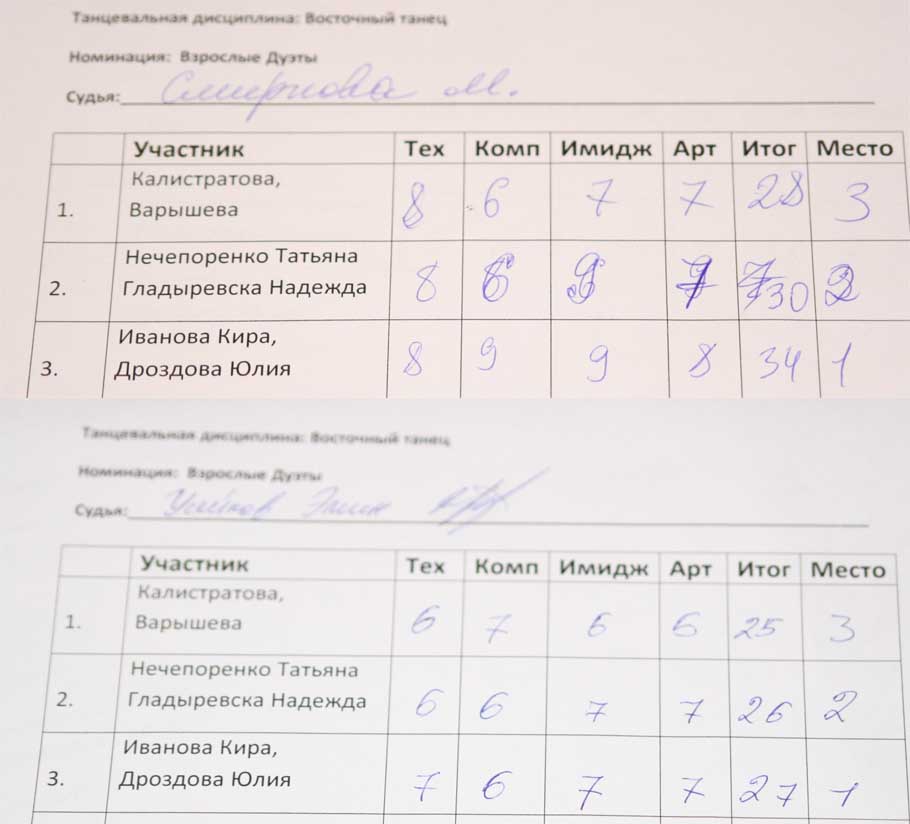 Танцевальная дисциплина: Восточный танец
Номинация: Взрослые Дуэты
Судья: Смирнова М.
Участник Тех Комп Имидж Арт Итог Место
Калистратова,
1. Варышева 8 6 7 7 28 3
Нечепоренко Татьяна
2. Гладыревска Надежда 8 6 9 7 30 2
Иванова Кира,
3. Дроздова Юлия 8 9 9 8 34 1
Танцевальная дисциплина: Восточный танец
Номинация: Взрослые Дуэты
Судья:
Участник Тех Комп Имидж Арт Итог Место
Калистратова,
1. Варышева 6 7 6 6 25 3
Нечепоренко Татьяна
2. Гладыревска Надежда 6 6 7 7 26 2
Иванова Кира,
3. Дроздова Юлия 7 6 7 7 27 1